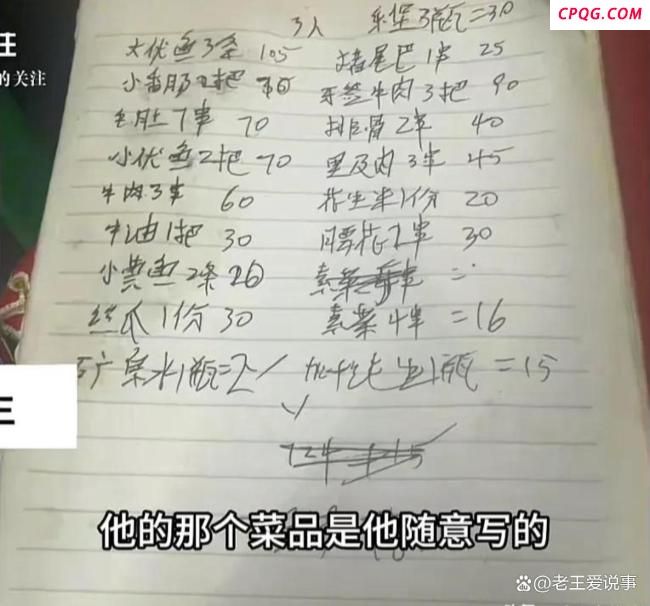 CPQG.COM
注
的关注
3人 乐堡3瓶=30
大优鱼3条 105 猪尾巴1串 25
小香肠2把 牙签牛肉3把 90
毛肚7串 70 排骨2串 40
小优鱼2把 70 里及肉3串 45
牛肉3串 60 花生米1份 20
牛油1把 30 腰花2串 30
小黄鱼2条 20 素菜 =
丝瓜1份 30 素菜4串 =16
矿泉水1瓶=2 加 1瓶=15
三
他的那个菜品是他随意写的
老王爱说事